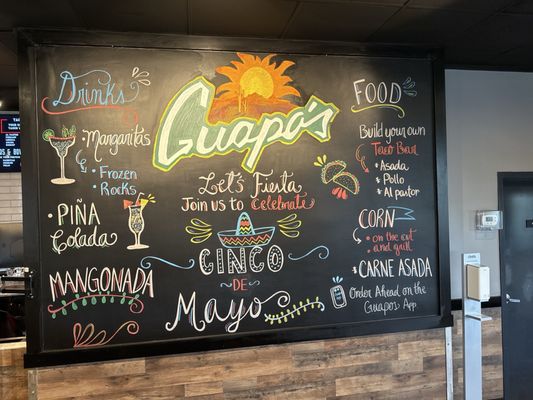 Guapo's
Let's Fiesta
Join us to Celebrate
CINCO
DE
Mayo
Drinks
Margaritas
Frozen
Rocks
• PIÑA
Colada
MANGONADA
FOOD
Build your own
Taco Bar
• Asada
• Pollo
• Al pastor
CORN
• on the cut
• grill
• CARNE ASADA
Order Ahead on the
Guapo's App